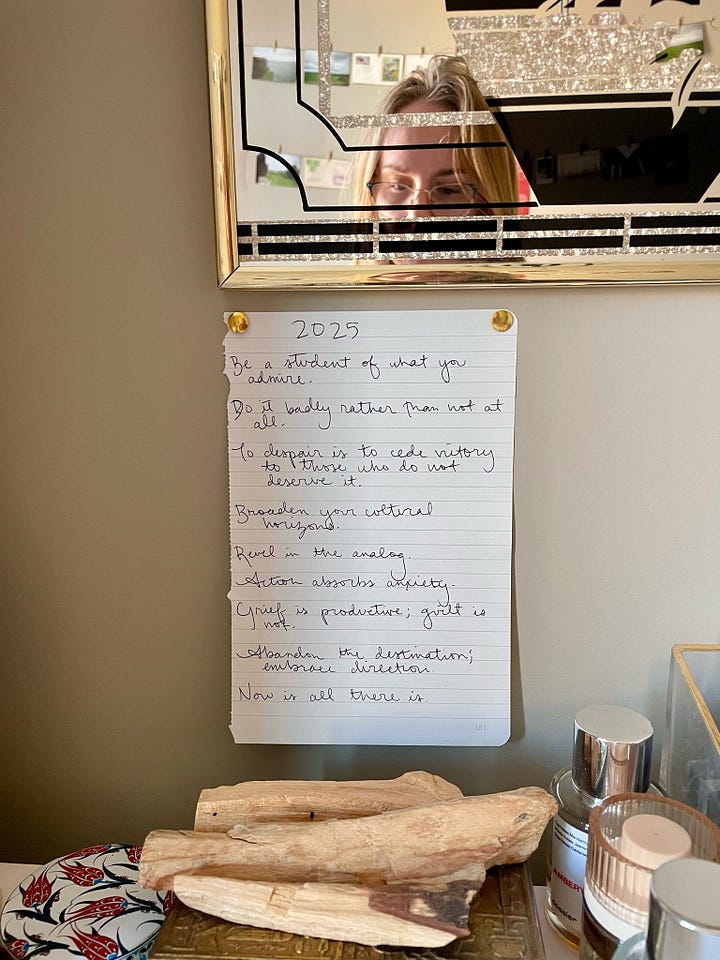 2025
Be a student of what you
admire.
Do it badly rather than not at
all.
To despair is to cede victory
to those who do not
deserve it.
Broaden your cultural
horizons.
Revel in the analog.
Action absorbs anxiety.
Grief is productive; guilt is
not.
Abandon the destination;
embrace direction.
Now is all there is.
187
AMBER
Dossier